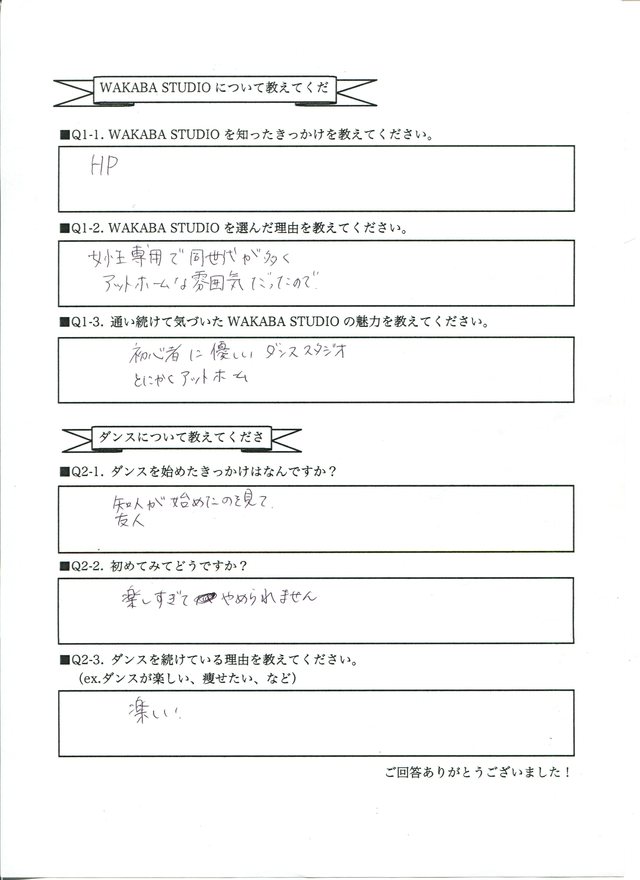 WAKABA STUDIO について教えてくだ
■Q1-1. WAKABA STUDIO を知ったきっかけを教えてください。
HP
■Q1-2. WAKABA STUDIO を選んだ理由を教えてください。
女性専用で同世代が多く
アットホームな雰囲気だったので
■Q1-3. 通い続けて気づいた WAKABA STUDIO の魅力を教えてください。
初心者に優しいダンススタジオ
とにかくアットホーム
ダンスについて教えてくださ
■Q2-1. ダンスを始めたきっかけはなんですか？
知人が始めたのを見て.
友人
■Q2-2. 初めてみてどうですか？
楽しすぎてやめられません
■Q2-3. ダンスを続けている理由を教えてください。
（ex.ダンスが楽しい、痩せたい、など）
楽しい.
ご回答ありがとうございました！